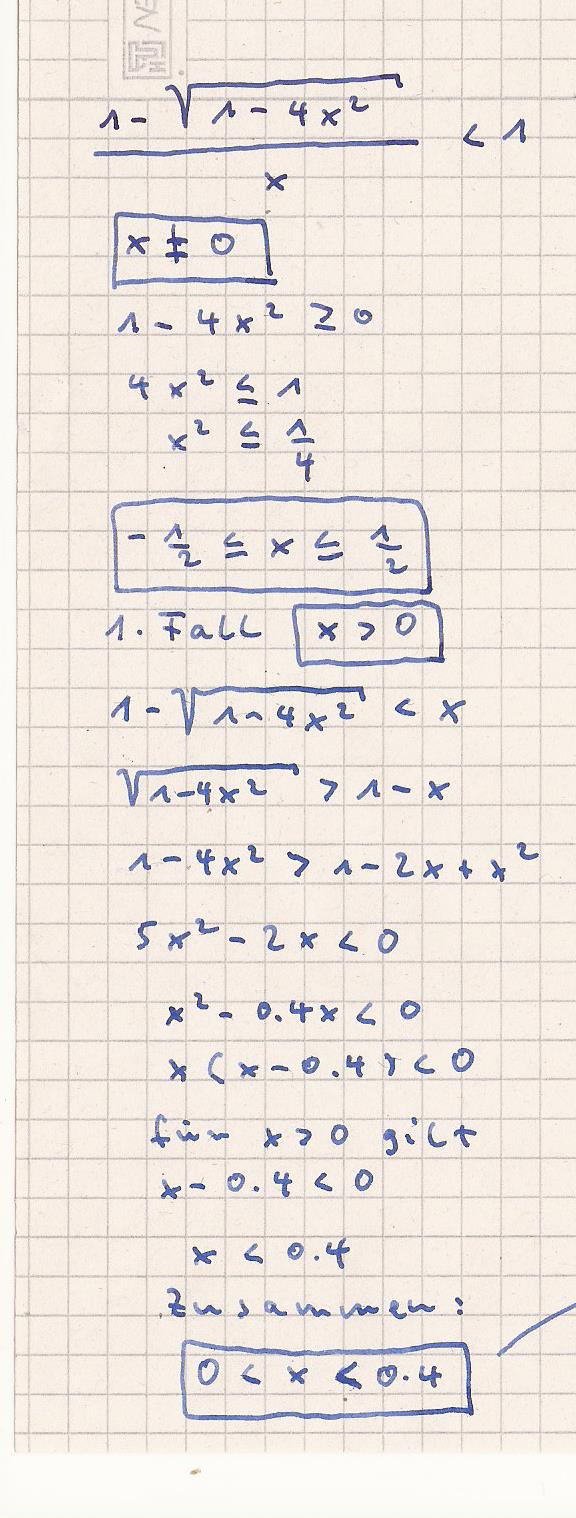 1 - √(1 - 4x²)
< 1
x
x ≠ 0
1 - 4x² ≥ 0
4x² ≤ 1
x² ≤ 1/4
- 1/2 ≤ x ≤ 1/2
1. Fall x > 0
1 - √(1 - 4x²) < x
√(1 - 4x²) > 1 - x
1 - 4x² > 1 - 2x + x²
5x² - 2x < 0
x² - 0.4x < 0
x (x - 0.4) < 0
für x > 0 gilt
x - 0.4 < 0
x < 0.4
Zusammen:
0 < x < 0.4